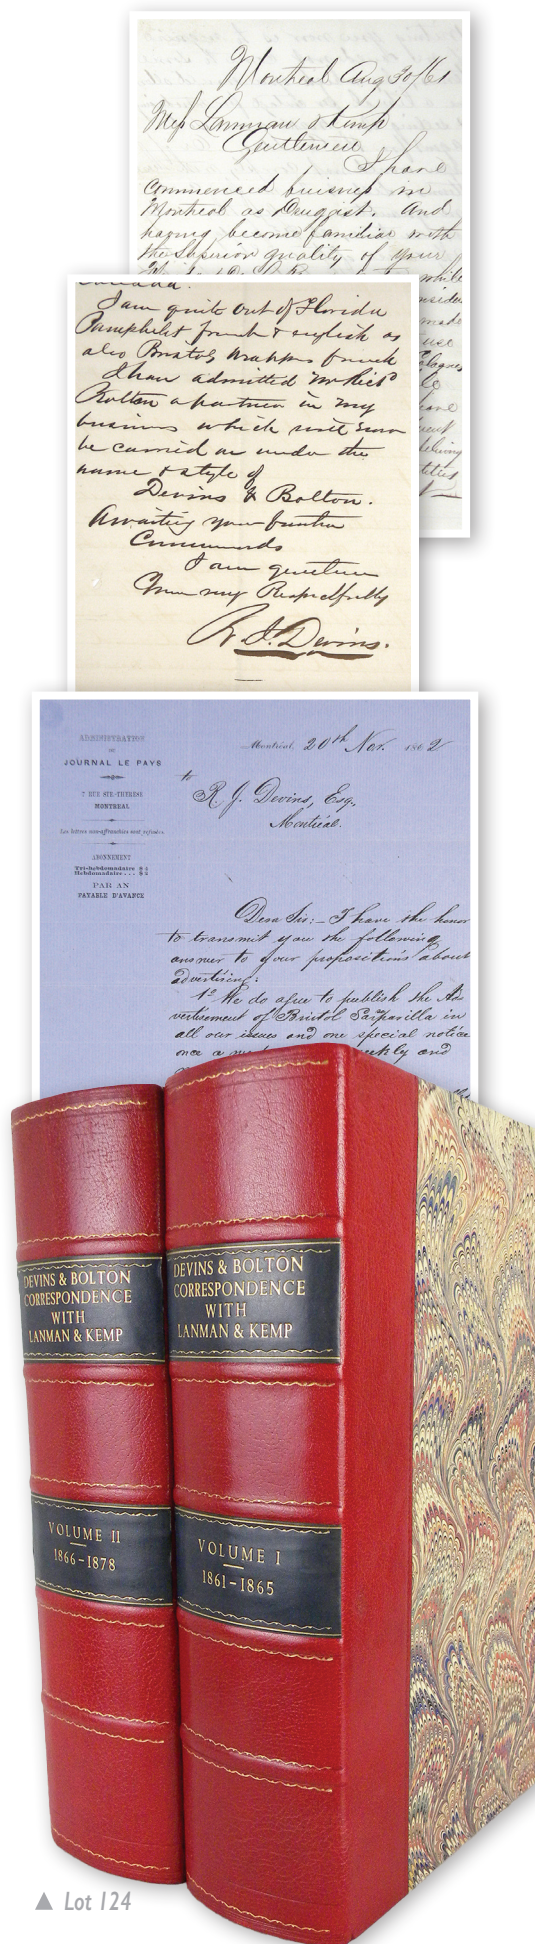 Montreal Aug 30/61
Mess Lanman & Kemp
Gentlemen
I have
commenced buisness in
Montreal as Druggist. And
having become familiar with
the Superior quality of your
while
made
use
Canada.
I am quite out of Florida
Pamphelet french & english as
also Bristols Wrappers french
I have admitted Mr Rich'd
Bolton a partner in my
business which will soon
be carried on under the
name & style of
Devins & Bolton.
Awaiting your further
Commands
I am gentlemen
Yours very Respectfully
R. J. Devins.
ADMINISTRATION
DU
JOURNAL LE PAYS
7 RUE STE-THERESE
MONTREAL
Les lettres non-affranchies sont refusées
ABONNEMENT
Tri-hebdomadaire $4
Hebdomadaire ... $2
PAR AN
PAYABLE D'AVANCE
Montréal, 20th Nov. 1862
to
R. J. Devins, Esq.
Montréal.
Dear Sir:- I have the honor
to transmit you the following
answer to your propositions about
advertising:
1° We do agree to publish the Ad
vertisement of Bristol Sarparilla in
all our issues and one special notice
once a weekly and
DEVINS & BOLTON
CORRESPONDENCE
WITH
LANMAN & KEMP
VOLUME II
1866-1878
DEVINS & BOLTON
CORRESPONDENCE
WITH
LANMAN & KEMP
VOLUME I
1861-1865
▲ Lot 124